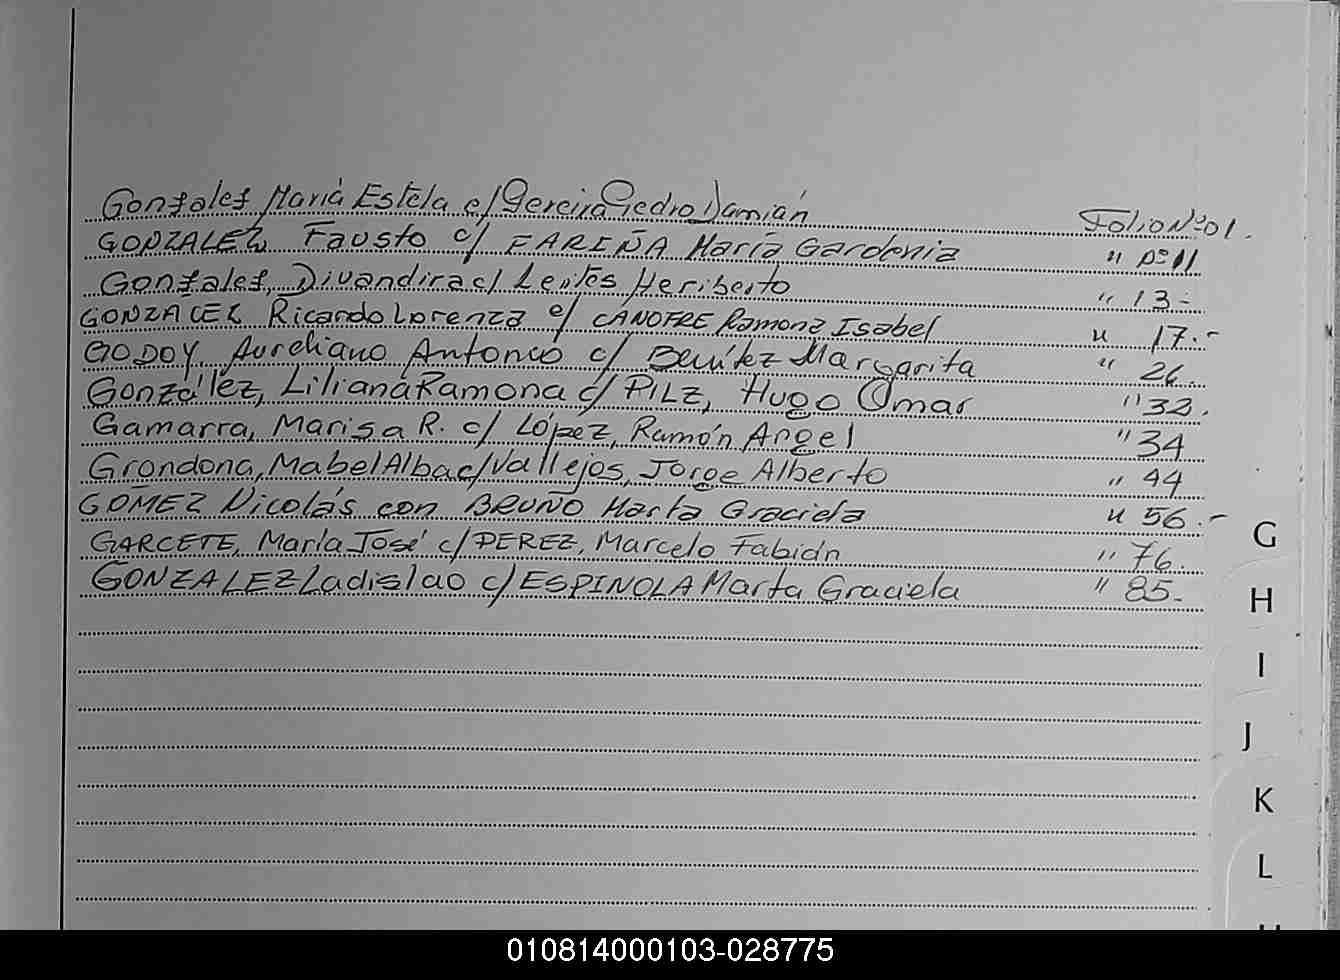 Gonzales María Estela c/ Pereira Pedro Damián Folio Nº 01.
GONZALEZ, Fausto c/ FARIÑA María Gardenia " Nº 11
Gonzales, Divandira c/ Leites Heriberto " 13-
GONZALEZ Ricardo Lorenza c/ CANOFRE Ramona Isabel " 17.-
GODOY, Aureliano Antonio c/ Benítez Margarita " 26.
González, Liliana Ramona c/ PILZ, Hugo Omar " 32.
Gamarra, Marisa R. c/ López, Ramón Angel " 34
Grondona, Mabel Alba c/ Vallejos, Jorge Alberto " 44
GOMEZ Nicolás con BRUÑO Marta Graciela " 56.-
GARCETE, María José c/ PEREZ, Marcelo Fabián " 76.
GONZALEZ Ladislao c/ ESPINOLA Marta Graciela " 85.-
G
H
I
J
K
L
010814000103-028775